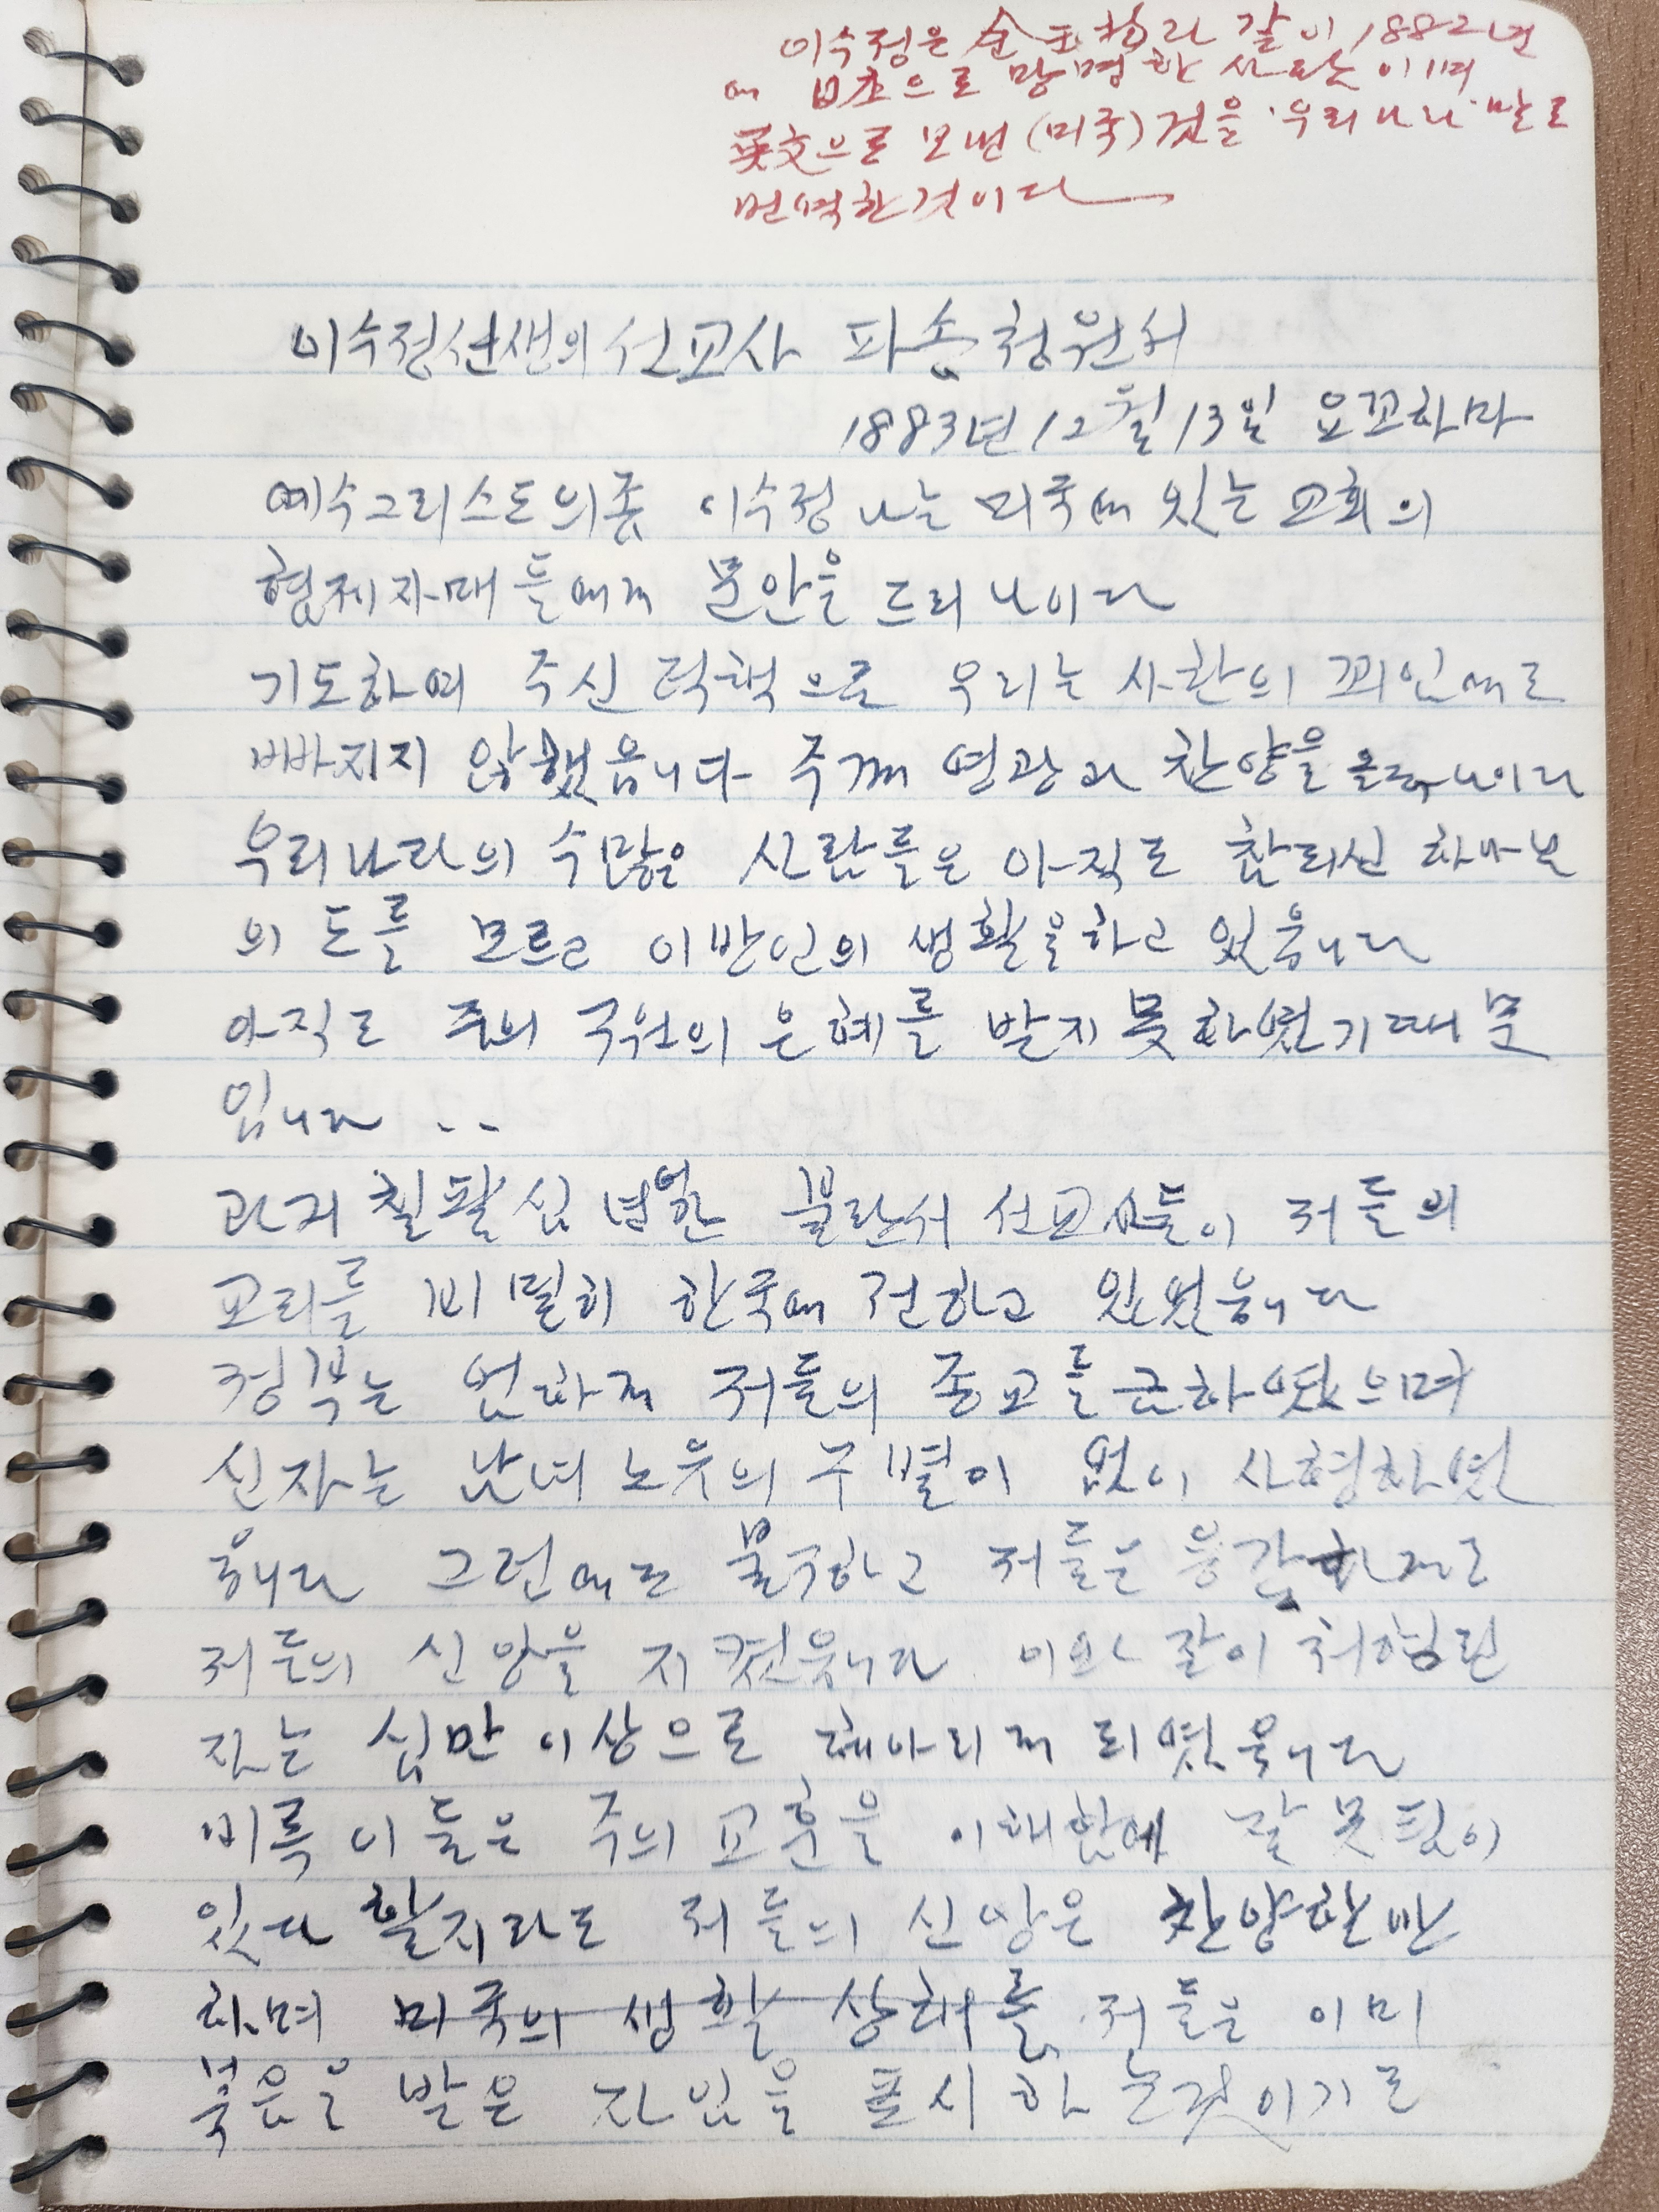 이수정은 갈이 1882년
에 日本으로 망명한 사람이며
英文으로 보낸 (미국) 것을 우리나라 말로
번역한것이다
이수정선생의 선교사 파송 청원서
1883년 12월 13일 요꼬하마
예수그리스도의종 이수정 나는 미국에 있는 교회의
형제자매들에게 문안을 드리나이다
기도하며 주신 덕택으로 우리는 사탄의 꾀임에로
빠지지 않했읍니다 주께 영광과 찬양을 올리나이다
우리나라의 수많은 사람들은 아직도 참되신 하나님
의 도를 모르고 이방인의 생활을하고 있읍니다
아직도 주의 구원의 은혜를 받지 못하였기때문
입니다 ..
과거 칠팔십 년한 불란서 선교사들이 저들의
교리를 비밀히 한국에 전하고 있었읍니다
정부는 엄하게 저들의 종교를금하였으며
신자는 남녀노유의 구별이 없이 사형하였
읍니다 그런에도 불구하고 저들은 용감하게도
저들의 신앙을 지켰읍니다 이와 같이 처형된
자는 십만 이상으로 헤아리게 되였읍니다
비록 이들은 주의 교훈을 이해함에 잘못됨이
있다 할지라도 저들의 신앙은 찬양할만
하며 미국의 생활 상태를 저들은 이미
복음을 받은 자임을 표시하는것이기도